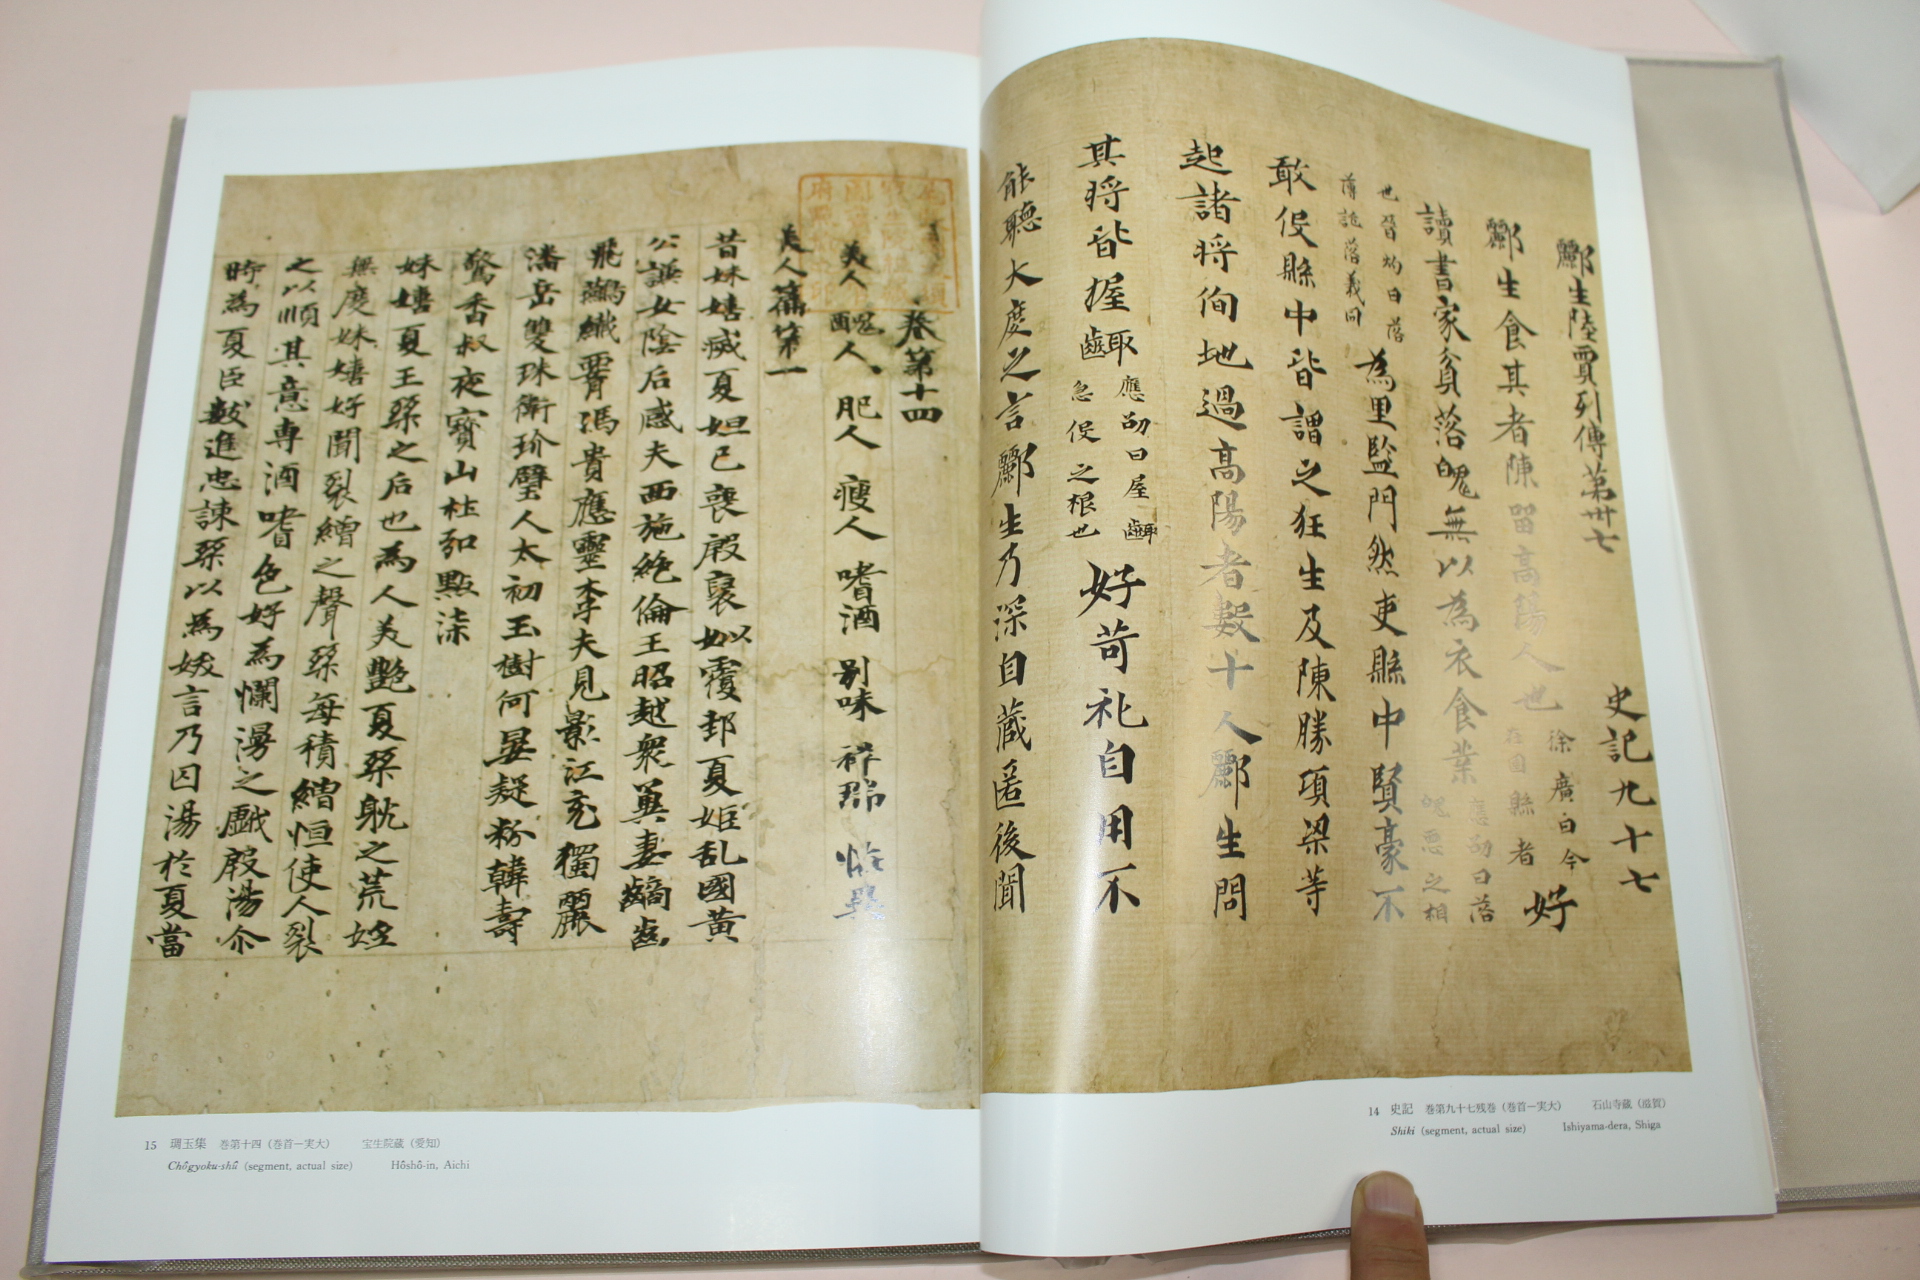 酈生陸賈列傳第卅七
史記九十七
酈生食其者陳留高陽人也 徐廣曰今在圉縣者 好
讀書家貧落魄無以為衣食業 應劭曰落魄惡之相
也晉灼曰落薄詑落義同 為里監門然吏縣中賢豪不
敢伇縣中皆謂之狂生及陳勝項梁等
起諸將侚地過高陽者數十人酈生問
其將皆握齱 應劭曰屋齱急伇之根也 好苛礼自用不
能聽大度之言酈生乃深自藏匿後聞
14 史記 巻第九十七残巻（巻首—実大） 石山寺蔵（滋賀）
Shiki (segment, actual size) Ishiyama-dera, Shiga
卷第十四
美人 醜人 肥人 瘦人 嗜酒 別味 祥瑞
美人篇第一
昔妹嬉滅夏妲己喪殷褒姒覆 夏姬乱國黃
公 女陰后感夫西施絶倫王昭越衆異妻齲齒
飛鷰纎腰馮貴應靈李夫見影江充獨麗
潘岳雙珠衛玠璧人太初玉樹何晏疑粉韓壽
驚香叔夜 山 點漆
妹嬉夏王桀之后也為人美艶夏桀躭之荒婬
無度妹嬉好聞裂繒之聲桀每積繒恒使人裂
之以順其意専酒嗜色好為爛漫之戱殷湯尒
時為夏臣數進忠諫桀以為妖言乃囚湯於夏當
15 琱玉集 巻第十四（巻首—実大） 宝生院蔵（愛知）
Chôgyoku-shû (segment, actual size) Hôshô-in, Aichi